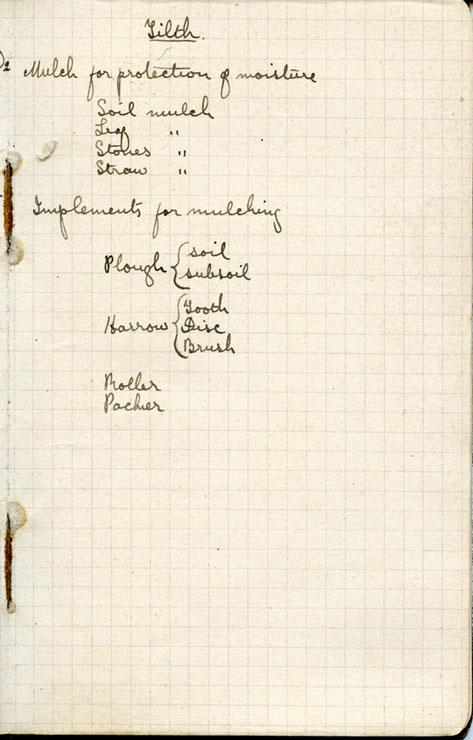 Tilth.
Mulch for protection of moisture
Soil mulch
Leaf "
Stones "
Straw "
Implements for mulching
Plough { soil
subsoil
Harrow { Tooth
Disc
Brush
Roller
Packer